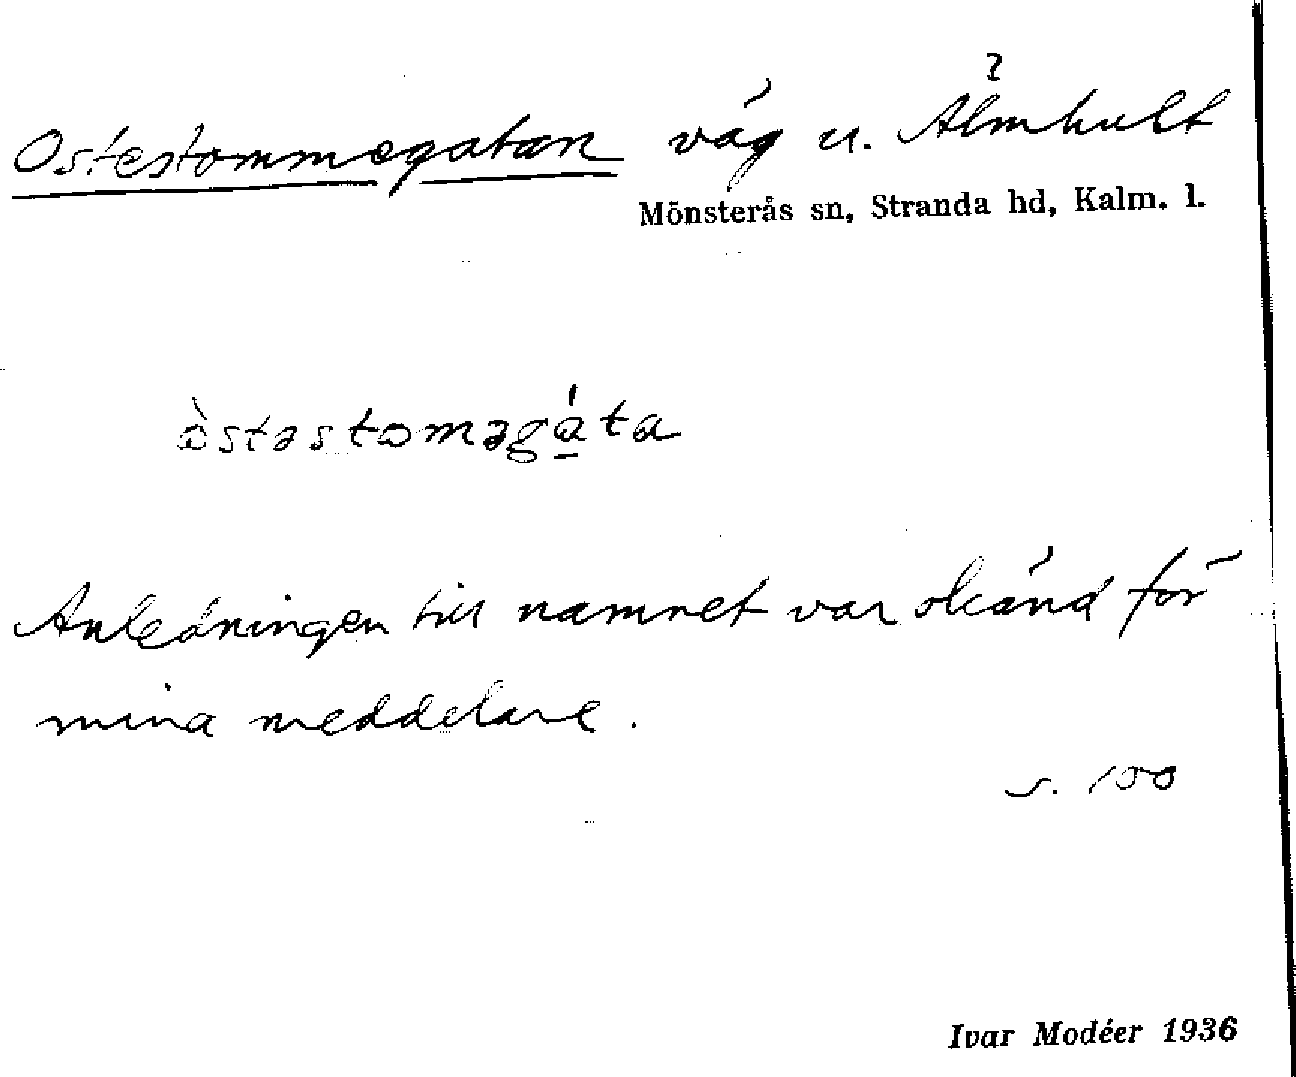 Ostestommegatan väg u. Älmhult
Mönsterås sn, Stranda hd, Kalm. l.
òstəstoməgá̱ta
Anledningen till namnet var okänd för
mina meddelare.
s. 100
Ivar Modéer 1936